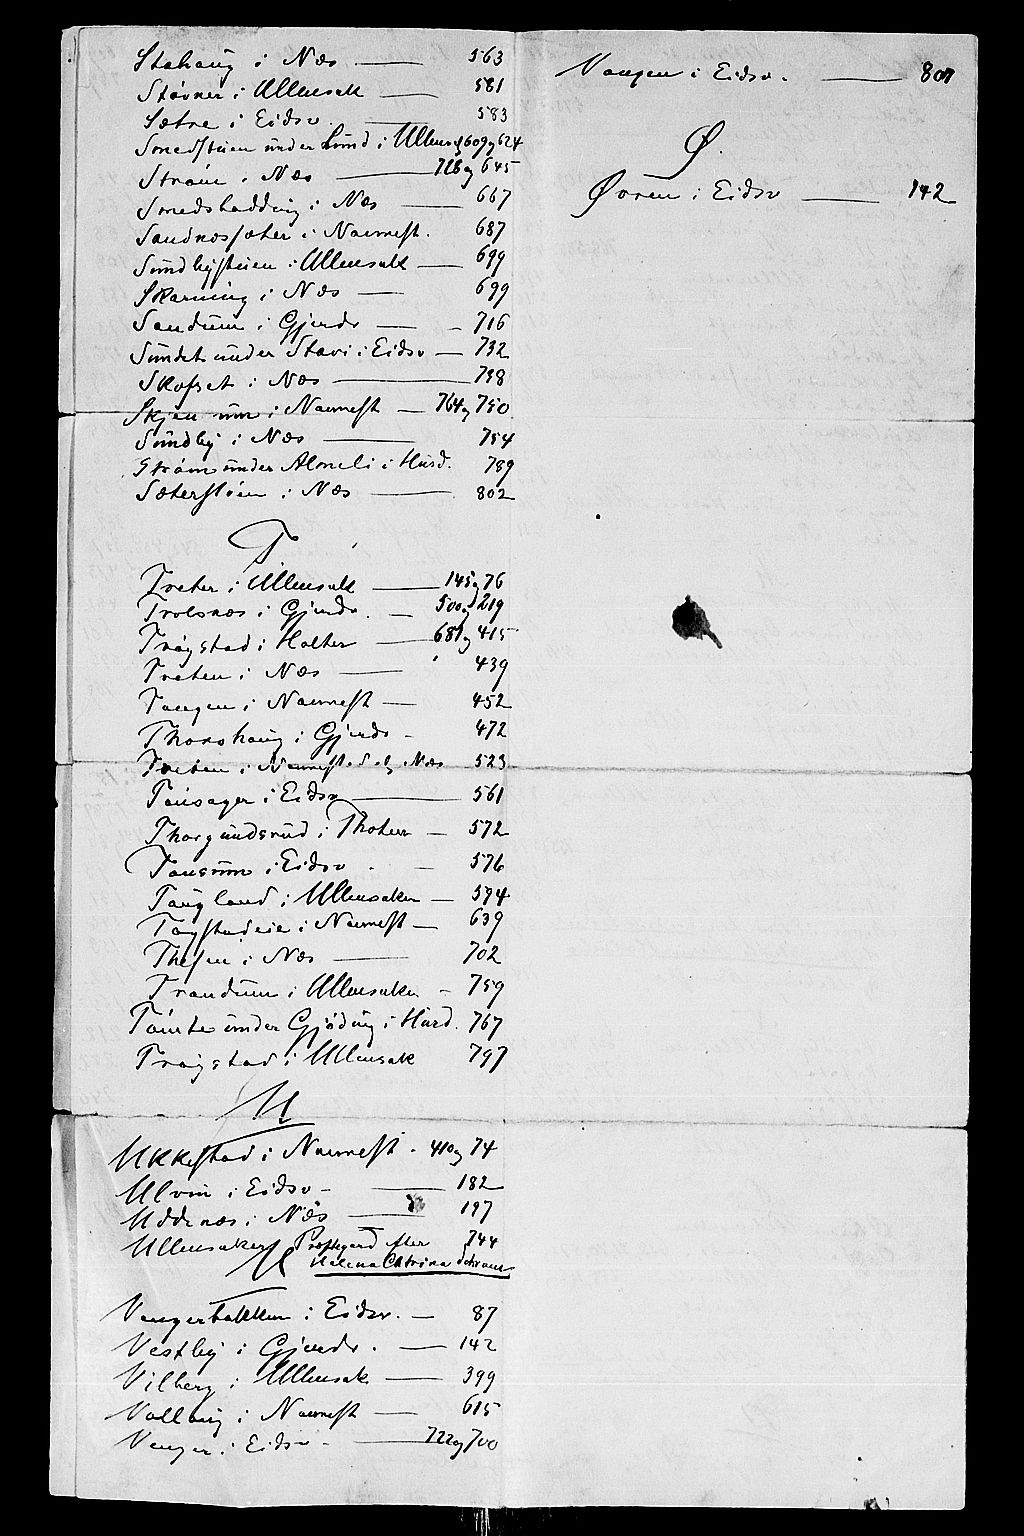 Stahaug i Næs — 563
Støvner i Ullensak — 581
Sætre i Eidsv. — 583
Smedstuen under Lund i Ullens. 609 og 624
Strøm i Næs — 728 og 645
Smedshaug i Næs — 667
Sandnessæter i Nannest. 687
Sundbystuen i Ullensak — 699
Skarning i Næs — 699
Sandum i Gjerdr — 716
Sundet under Stavi i Eidsv — 732
Skofset i Næs — 738
Skjennum i Nannest — 764 og 750
Sundby i Næs — 754
Strøm under Almeli i Hurd. 789
Sæterstøen i Næs — 802
T
Tveter i Ullensak — 145 og 76
Trolsnæs i Gjerdr. — 500 og 219
Trøgstad i Holter — 681 og 415
Treten i Næs — 439
Tangen i Nannest — 452
Thorshaug i Gjerdr - 472
Treten i Nannest. S. og Næs 523
Tousager i Eidsv — 561
Thorgundsrud i Thoten — 572
Tonsrum i Eidsv. — 576
Taugland i Ullensaker — 594
Togstadeie i Nannest — 639
Thesen i Næs — 702
Trandum i Ullensaker - 759
Tømte under Gjøding i Hurd. 767
Trøgstad i Ullensak 797
U
Ukkestad i Nannest. 410 og 74
Ulvin i Eidsv — 182
Uddenæs i Næs — 197
Ullensakers Præstegard efter 744
Helena Catrina Schraus
V
Vengerbakken i Eidsv. — 87
Vestby i Gjerdr. — 142
Vilberg i Ullensak — 399
Vollaug i Nannest — 615
Venger i Eidsv — 722 og 700
Vangen i Eidsv. — 807
Ø.
Øvren i Eidsv — 142